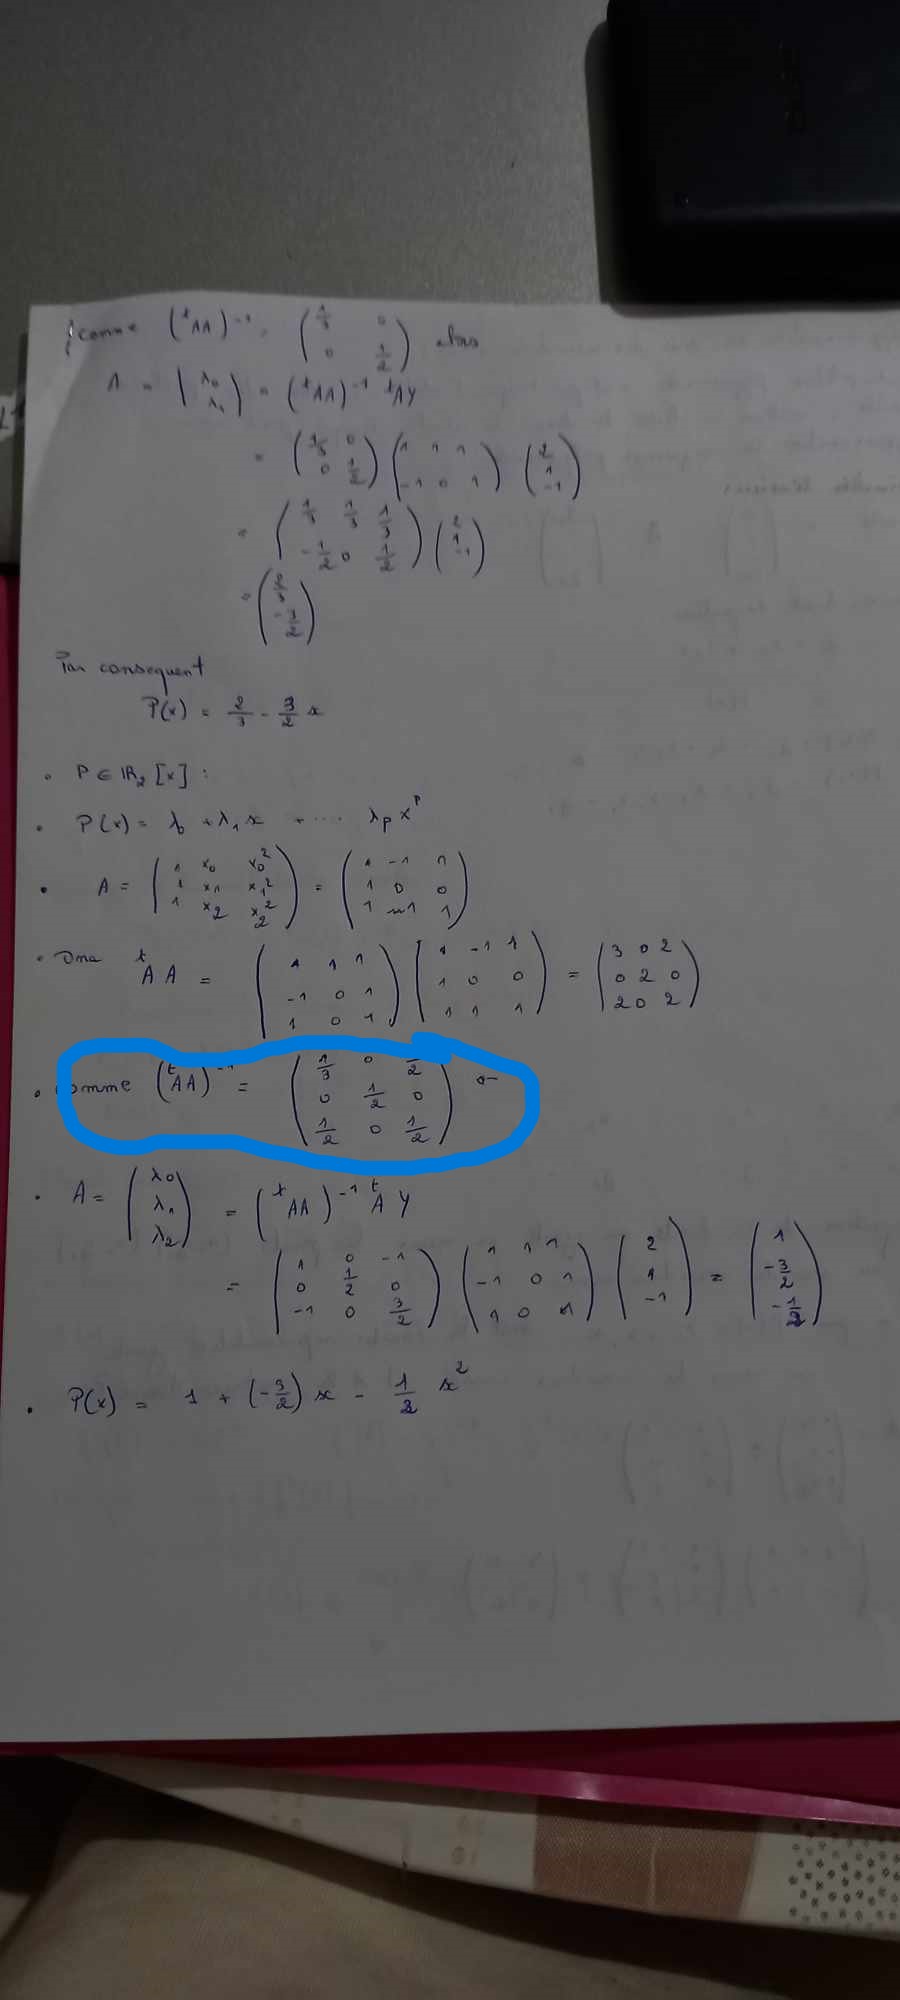 comme (ᵗAA)⁻¹ = ( 1/3 0 ; 0 1/2 ) alors
Λ = ( λ₀ ; λ₁ ) = (ᵗAA)⁻¹ ᵗAY
= ( 1/3 0 ; 0 1/2 ) ( 1 1 1 ; -1 0 1 ) ( 2 ; 1 ; -1 )
= ( 1/3 1/3 1/3 ; -1/2 0 1/2 ) ( 2 ; 1 ; -1 )
= ( 2/3 ; -3/2 )
Par consequent
P(x) = 2/3 - 3/2 x
• P ∈ ℝ₂[x] :
• P(x) = λ₀ + λ₁x + .... λₚxᵖ
• A = ( 1 x₀ x₀² ; 1 x₁ x₁² ; 1 x₂ x₂² ) = ( 1 -1 1 ; 1 0 0 ; 1 1 1 )
• Ona ᵗAA = ( 1 1 1 ; -1 0 1 ; 1 0 1 ) ( 1 -1 1 ; 1 0 0 ; 1 1 1 ) = ( 3 0 2 ; 0 2 0 ; 2 0 2 )
• comme (ᵗAA)⁻¹ = ( 1/3 0 /2 ; 0 1/2 0 ; 1/2 0 1/2 )
• A = ( λ₀ ; λ₁ ; λ₂ ) = (ᵗAA)⁻¹ ᵗAY
= ( 1 0 -1 ; 0 1/2 0 ; -1 0 3/2 ) ( 1 1 1 ; -1 0 1 ; 1 0 1 ) ( 2 ; 1 ; -1 ) = ( 1 ; -3/2 ; -1/2 )
• P(x) = 1 + (-3/2) x - 1/2 x²